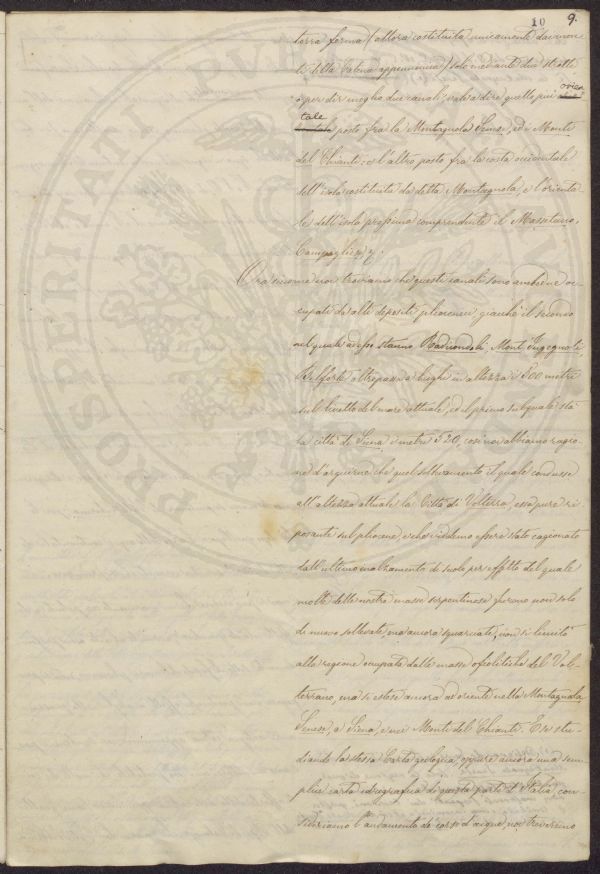 10 9.
terra ferma (allora costituita unicamente dai mon-
ti della Catena appenninica) solo mediante due stretti
o per dir meglio due canali; vale a dire quello più orien
tale posto fra la Montagnola Senese, ed i Monti
del Chianti: e l'altro posto fra la costa occidentale
dell'isola costituita da detta Montagnola, e l'orienta
le dell'isola prossima comprendente il Massetano,
Campagliese
Ora siccome noi troviamo che questi canali sono ambedue oc-
cupati da alti depositi pliocenici, giacchè il secondo
nel quale adesso stanno Radicondoli, Mont'Ingegnoli,
Belforte oltrepassa a luoghi in altezza i 500 metri
sul livello del mare attuale, ed il primo sul quale sta
la città di Siena i metri 320, così noi abbiamo ragio
ne d'arguirne che quel sollevamento il quale condusse
all'altezza attuale la Città di Volterra, essa pure ri
posante sul pliocene, e che vedemmo essere stato cagionato
dall'ultimo inalzamento di suolo per effetto del quale
molte delle nostre masse serpentinose furono non solo
di nuovo sollevate, ma ancora squarciate, non si limitò
alla regione occupata dalle masse ofiolitiche del Vol-
terrano, ma si estese ancora ad oriente nella Montagnola
Senese, a Siena, e nei Monti del Chianti. E se stu-
diando la stessa Carta geologica, oppure ancora una sem
plice carta idrografica di questa parte d'Italia, con-
sideriamo l'andamento de' corsi d'acqua, noi troveremo
PROSPERITATI PVBLICAE